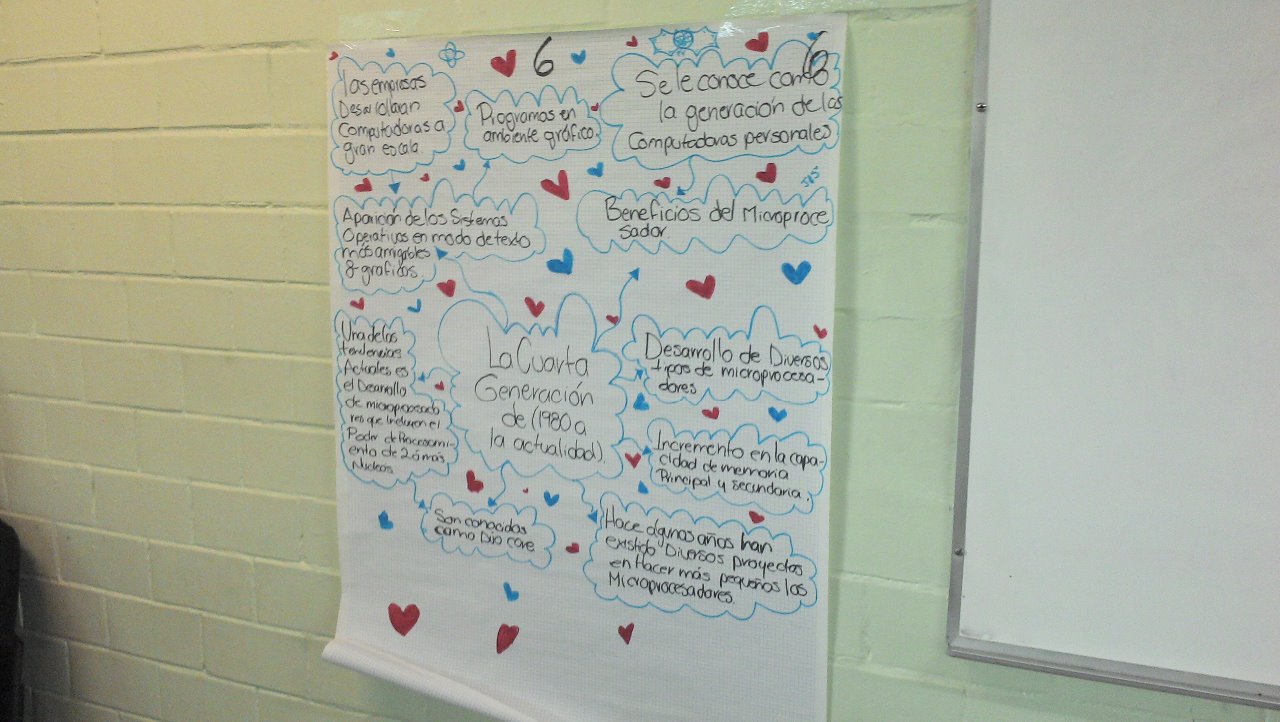 6
6
las empresas
Desarrollaran
Computadoras a
gran escala.
Programas en
ambiente gráfico.
Se le conoce como
la generación de las
Computadoras personales
Aparición de los Sistemas
Operativos en modo de texto
más amigables
y graficos.
Beneficios del Microproce
sador.
Una de las
tendencias
Actuales es
el Desarrollo
de microprocesado
res que Incluyen el
Poder de Procesami-
ento de 2 ó más
Nucleos
La Cuarta
Generación
de (1980 a
la actualidad).
Desarrollo de Diversos
tipos de microprocesa-
dores
Incremento en la capa-
cidad de memoria
Principal y secundaria.
Son conocidos
como Duo core
Hace algunos años han
existido Diversos proyectos
en Hacer más pequeños los
Microprocesadores.